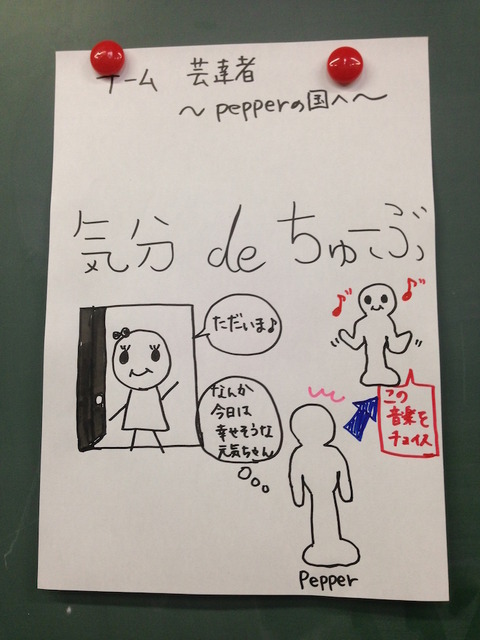 チーム 芸達者
〜pepperの国へ〜
気分 de ちゅーぶ
ただいま♪
なんか
今日は
幸せそうな
元気ちゃん
この
音楽を
チョイス
Pepper